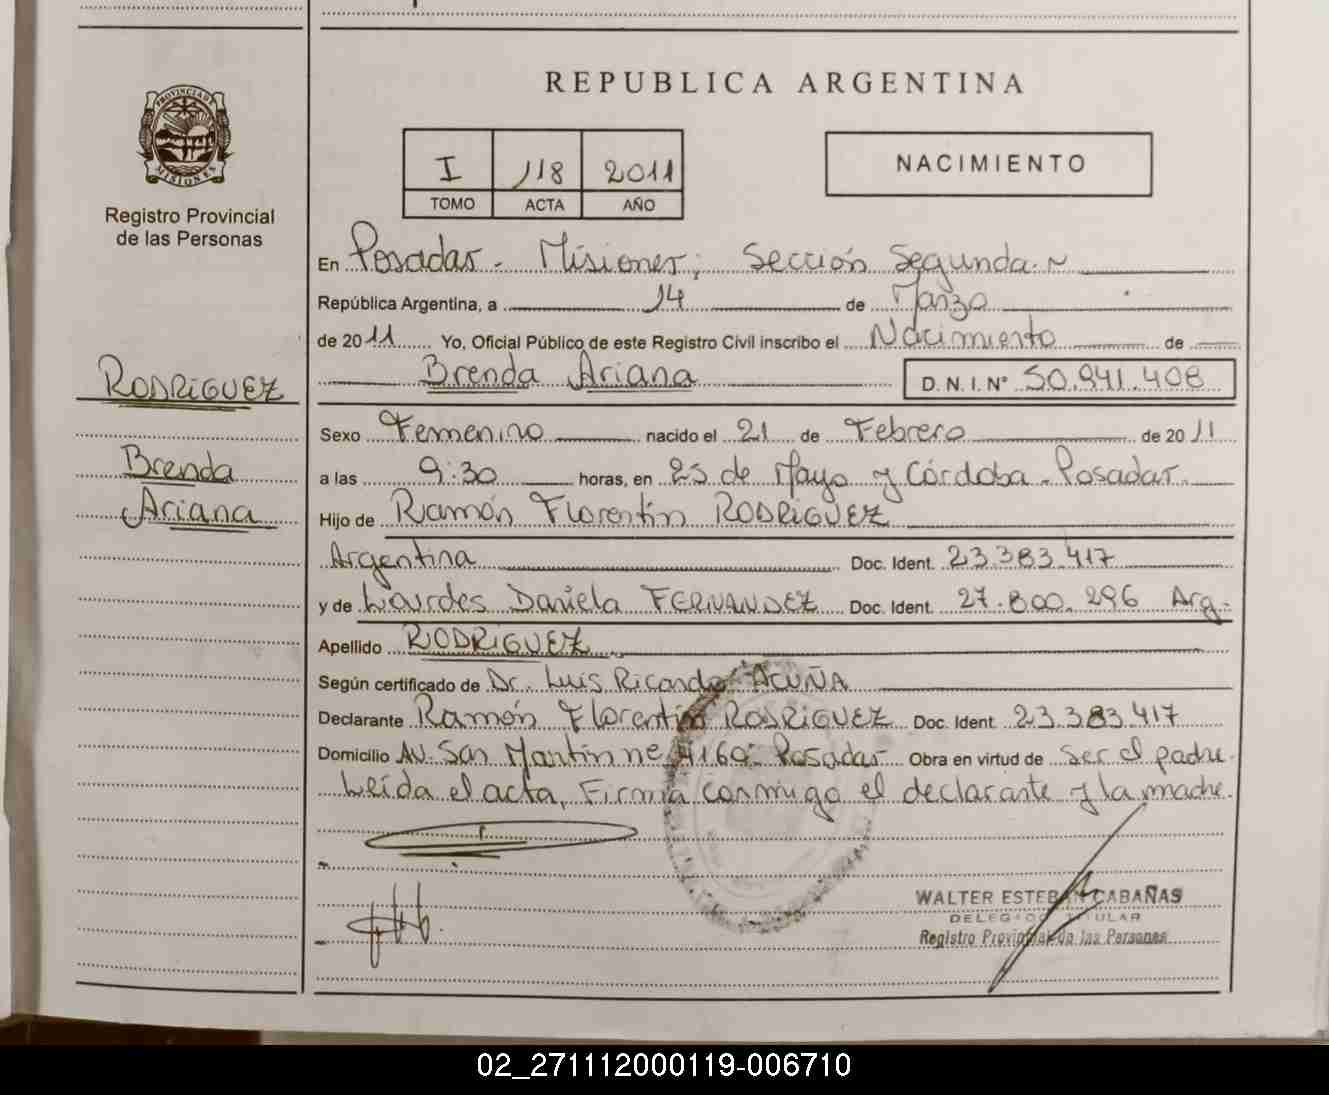 REPUBLICA ARGENTINA
PROVINCIA DE
MISIONES
Registro Provincial
de las Personas
I 118 2011
TOMO ACTA AÑO
NACIMIENTO
En Posadas - Misiones; Sección Segunda.
República Argentina, a 14 de Marzo
de 2011 Yo, Oficial Público de este Registro Civil inscribo el Nacimiento de
Brenda Ariana D.N.I.N° 50.941.408
RODRIGUEZ
Brenda
Ariana
Sexo Femenino nacido el 21 de Febrero de 2011
a las 9:30 horas, en 25 de Mayo y Córdoba - Posadas.
Hijo de Ramón Florentín RODRIGUEZ
Argentina Doc. Ident. 23.383.417
y de Lourdes Daniela FERNANDEZ Doc. Ident. 27.800.296 Arg.
Apellido RODRIGUEZ
Según certificado de Dr. Luis Ricardo ACUÑA
Declarante Ramón Florentín RODRIGUEZ Doc. Ident. 23.383.417
Domicilio Av. San Martín nº 4160- Posadas- Obra en virtud de ser el padre.
Leída el acta, Firma conmigo el declarante y la madre.
WALTER ESTEBAN CABAÑAS
DELEGADO TITULAR
Registro Provincial de las Personas
02_271112000119-006710